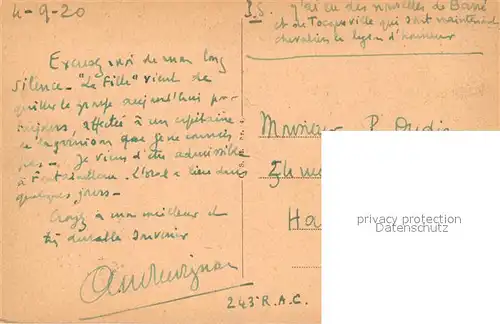 4-9-20
P.S. J'ai eu des nouvelles de Barré
et de Tocqueville qui sont maintenant
chevaliers le légion d'honneur
Excusez moi de mon long
silence - "La Fille" vient de
quitter le groupe aujourd'hui pour
toujours, affectée à un capitaine
que je ne connais
pas - Je viens d'être admissible
à Fontainebleau. L'oral a lieu dans
quelques jours -
Croyez à mon meilleur et
très durable souvenir
243e R.A.C.
Monsieur P.
Elune
Ha
privacy protection
samples